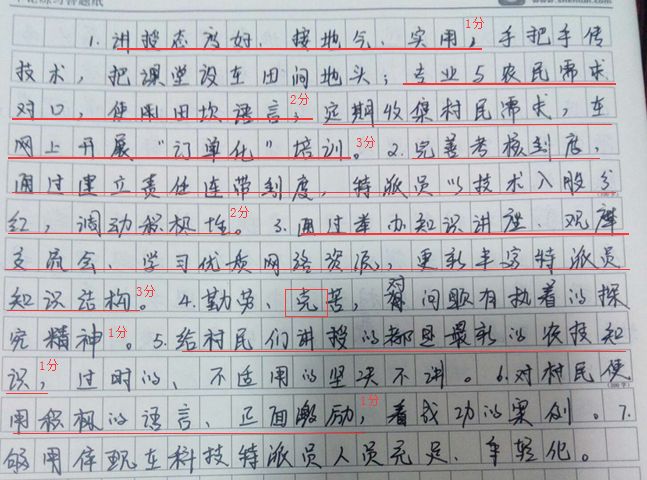 1.讲授态度好、接地气、实用,手把手传 1分
技术,把课堂设在田间地头;专业与农民需求
对口,使用田坎语言;定期收集村民需求,在 2分
网上开展“订单化”培训。2.完善考核制度, 3分
通过建立责任连带制度,特派员以技术入股分
红,调动积极性。3.通过举办知识讲座、观摩 2分
交流会、学习优质网络资源,更新丰富特派员
知识结构。4.勤劳、克苦,有问题有执着的探 3分
究精神。5.给村民们讲授的都是最新的农技知 1分
识,过时的、不适用的坚决不讲。6.对村民使 1分
用积极的语言、正面激励,看成功的案例。7. 1分
够用体现在科技特派员人员充足、年轻化。